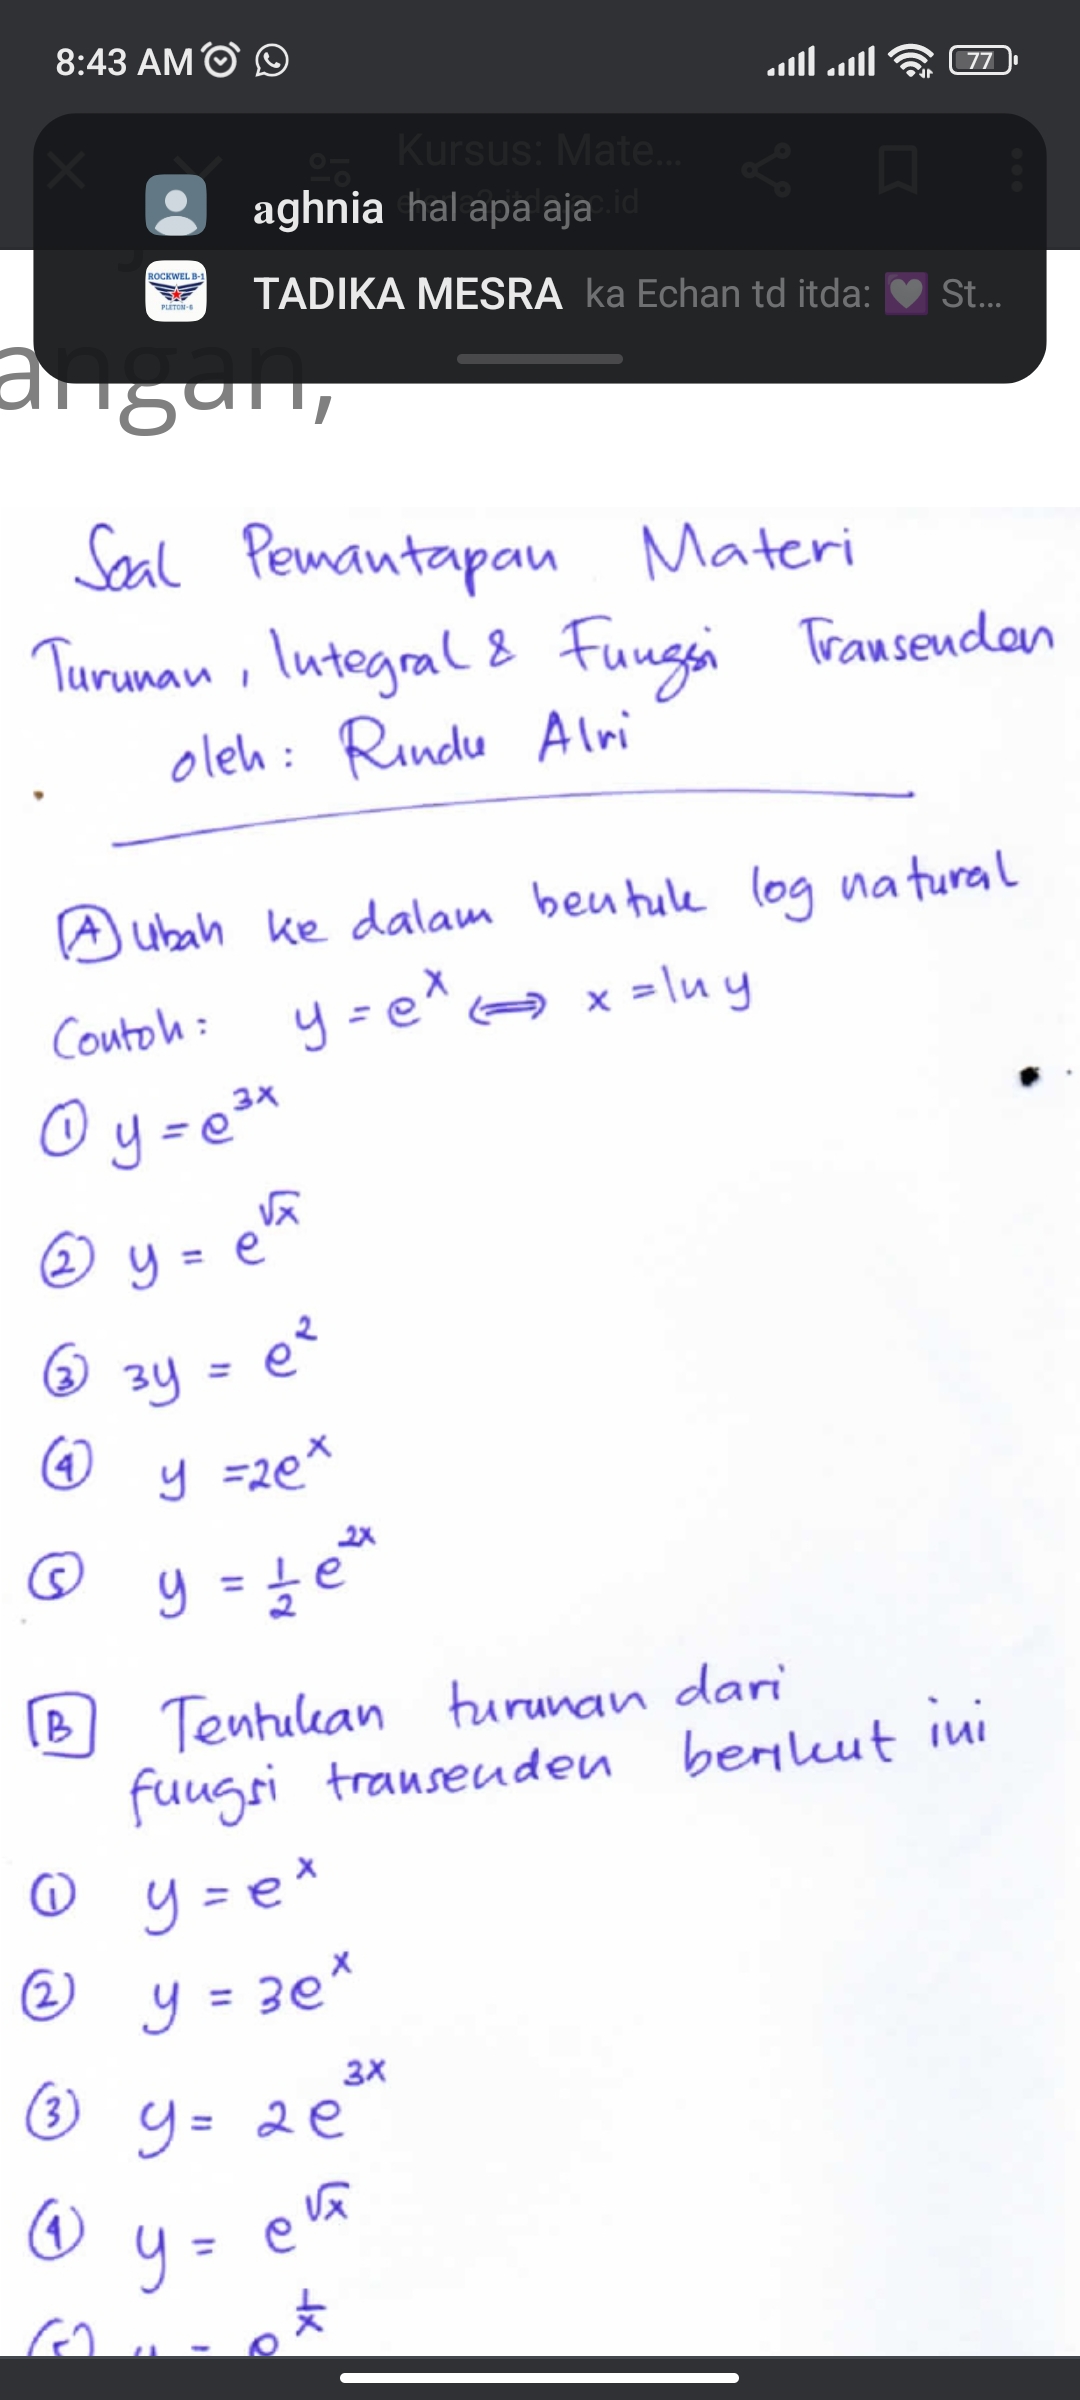 8:43 AM
77
Kursus: Mate...
aghnia hal apa aja
ROCKWEL B-1
PLETON-6
TADIKA MESRA ka Echan td itda: 💟 St...
angan,
Soal Pemantapan Materi
Turunan, Integral & Fungsi Transenden
oleh: Rindu Alri
Ⓐ Ubah ke dalam bentuk log natural
Contoh: y = eˣ ⟺ x = ln y
① y = e³ˣ
② y = e^√x
③ 3y = e²
④ y = 2eˣ
⑤ y = 1/2 e²ˣ
B Tentukan turunan dari
fungsi transenden berikut ini
① y = eˣ
② y = 3eˣ
③ y = 2e³ˣ
④ y = e^√x
⑤ y = e^1/x